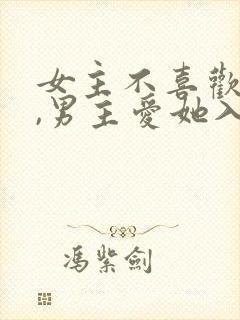 女主不喜歡
,男主愛她入
馮紫劍